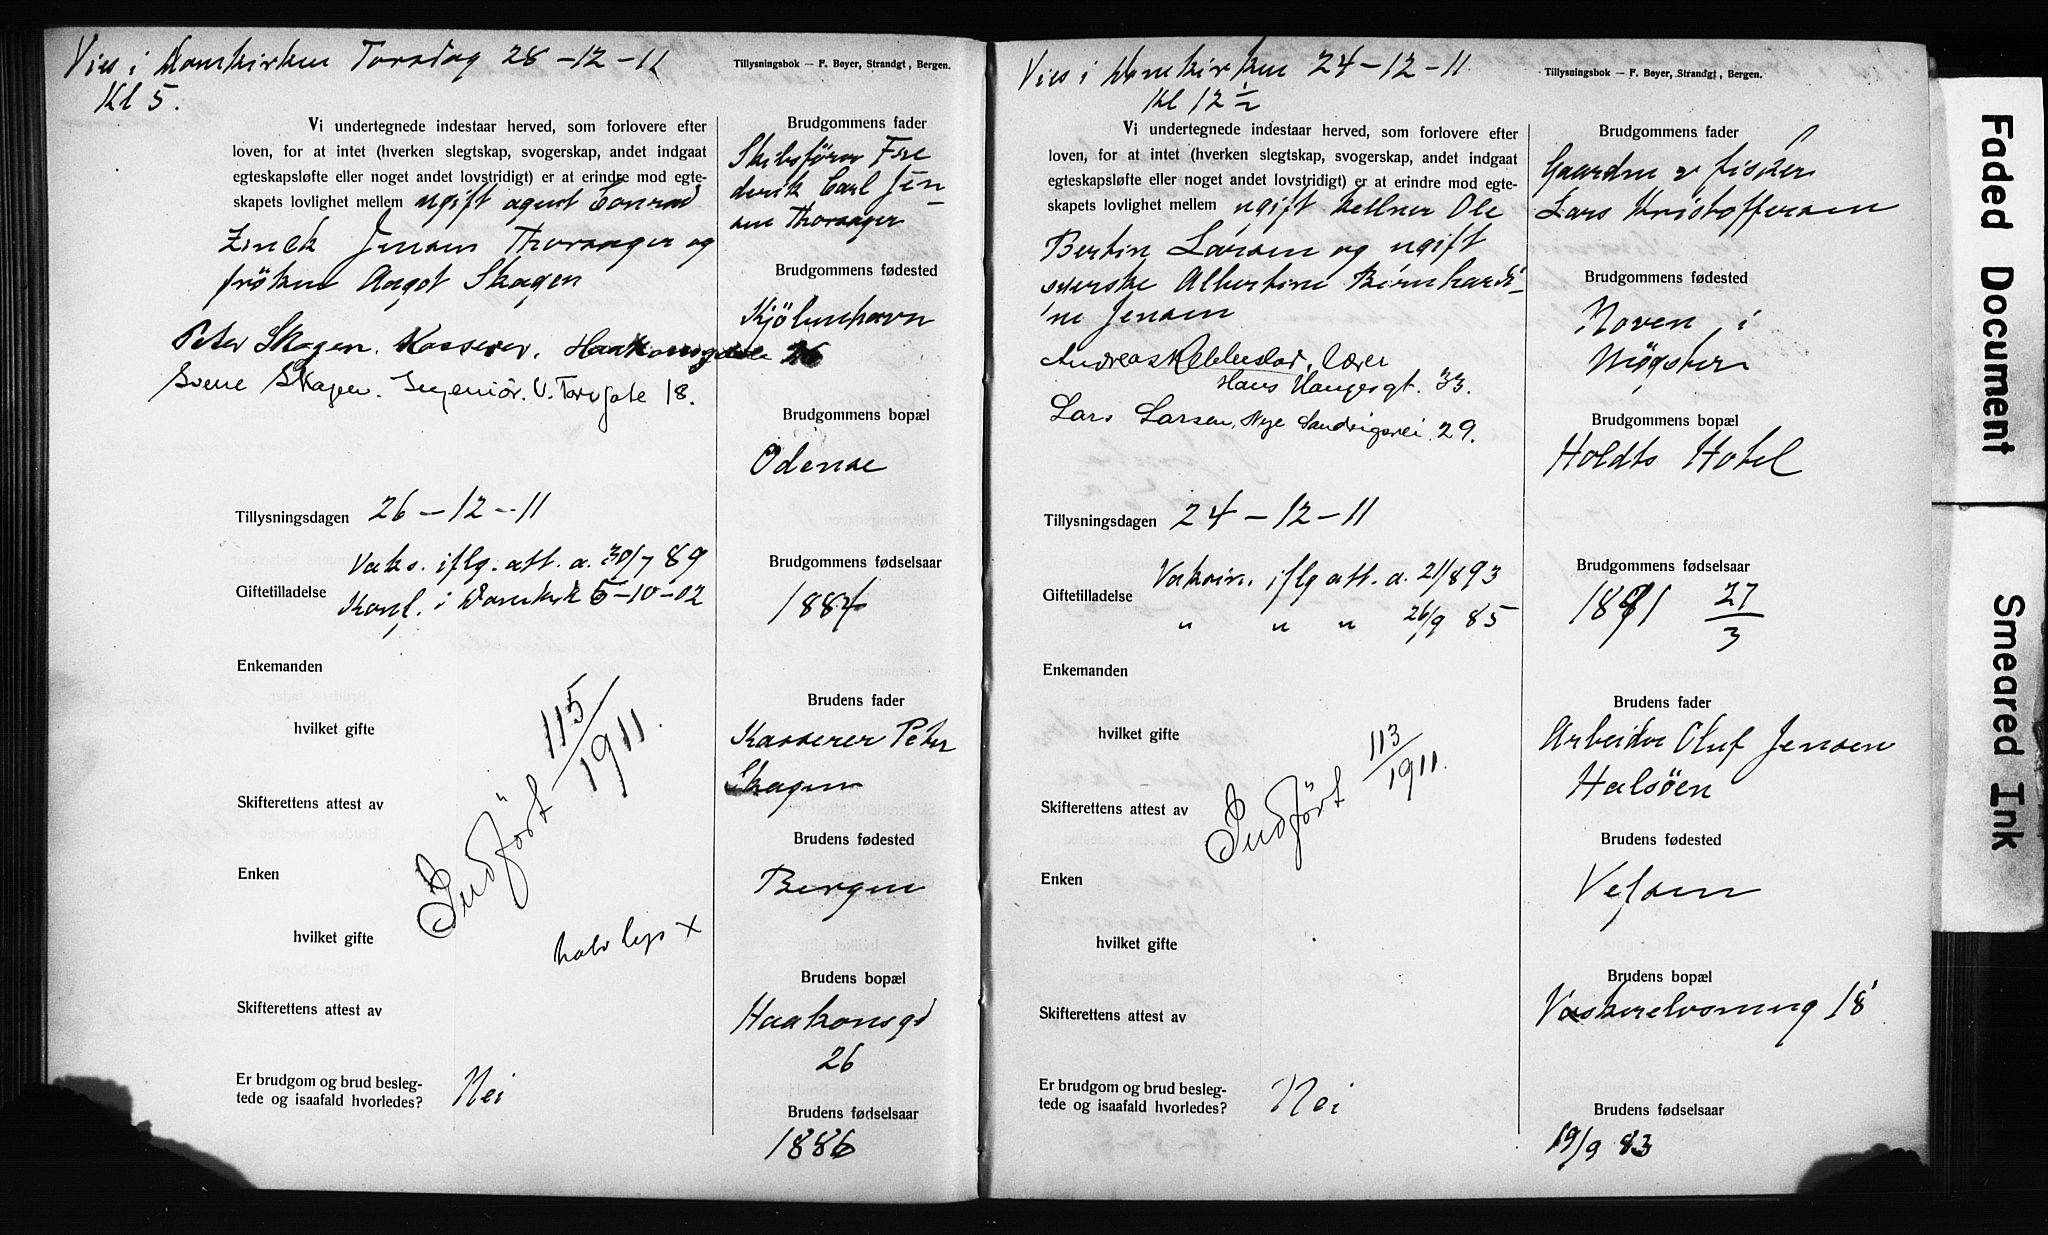 Vies i Domkirken Torsdag 28-12-11
Kl 5.
Tillysningsbok — F. Beyer, Strandgt, Bergen.
Vi undertegnede indestaar herved, som forlovere efter
loven, for at intet (hverken slegtskap, svogerskap, andet indgaat
egteskapsløfte eller noget andet lovstridigt) er at erindre mod egte-
skapets lovlighet mellem ugift agent Conrad
Zinck Jensen Thorsager og
frøken Aagot Skagen
Peter Skagen. Kasserer. Haakonsgaten 26
Sverre Skagen. Ingeniør. V. Torvgate 18.
Tillysningsdagen 26-12-11
Vaks. iflg. att. a. 30/7 89
Giftetilladelse Konf. i Domkirk 5-10-02
Enkemanden
hvilket gifte
Skifterettens attest av
Enken
hvilket gifte
Skifterettens attest av
Er brudgom og brud besleg-
tede og isaafald hvorledes? Nei
Indført 115/1911.
halv lys x
Brudgommens fader
Skibsfører Fre
derik Carl Jen-
sen Thorsager
Brudgommens fødested
Kjöbenhavn
Brudgommens bopæl
Odense
Brudgommens fødselsaar
1884
Brudens fader
Kasserer Peter
Skagen
Brudens fødested
Bergen
Brudens bopæl
Haakonsgd
26
Brudens fødselsaar
1886
Vies i Domkirken 24-12-11
Kl 12 1/2
Tillysningsbok — F. Beyer, Strandgt, Bergen.
Vi undertegnede indestaar herved, som forlovere efter
loven, for at intet (hverken slegtskap, svogerskap, andet indgaat
egteskapsløfte eller noget andet lovstridigt) er at erindre mod egte-
skapets lovlighet mellem ugift kellner Ole
Bertin Larsen og ugift
syerske Albertine Bernhardi-
ne Jensen
Andreas lærer
Hans Haugesgt. 33.
Lars Larsen, Nye Sandvigsvei 29.
Tillysningsdagen 24-12-11
Vaksin. iflg att. a. 21/8 93
Giftetilladelse
" " " 26/9 85
Enkemanden
hvilket gifte
Skifterettens attest av
Enken
hvilket gifte
Skifterettens attest av
Er brudgom og brud besleg-
tede og isaafald hvorledes? Nei
Indført 113/1911.
Brudgommens fader
Gaardm & fisker
Lars Kristoffersen
Brudgommens fødested
Hoven i
Møgster
Brudgommens bopæl
Holdts Hotel
Brudgommens fødselsaar
1881 27/3
Brudens fader
Arbeider Oluf Jensen
Halsöen
Brudens fødested
Vefsen
Brudens bopæl
Vaskerelvsmug 18
Brudens fødselsaar
19/9 83
Faded Document
Smeared Ink